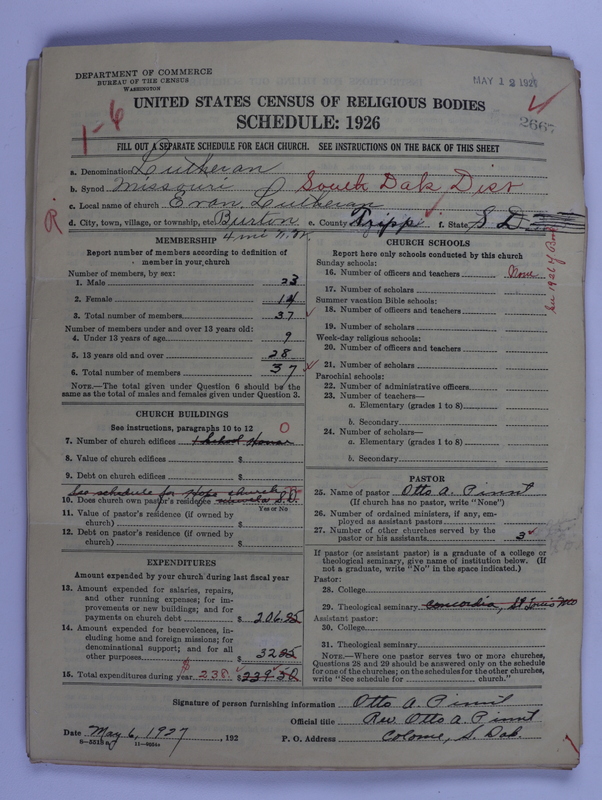 DEPARTMENT OF COMMERCE
BUREAU OF THE CENSUS
WASHINGTON
MAY 12 1927
1-6
UNITED STATES CENSUS OF RELIGIOUS BODIES
SCHEDULE: 1926
2667
FILL OUT A SEPARATE SCHEDULE FOR EACH CHURCH. SEE INSTRUCTIONS ON THE BACK OF THIS SHEET
a. Denomination Lutheran
b. Synod Missouri South Dak Dist
c. Local name of church Evan. Lutheran
R
d. City, town, village, or township, etc. Burton e. County Tripp f. State S D
MEMBERSHIP
Report number of members according to definition of
member in your church
Number of members, by sex:
1. Male 23
2. Female 14
3. Total number of members 37
Number of members under and over 13 years old:
4. Under 13 years of age 9
5. 13 years old and over 28
6. Total number of members 37
NOTE.—The total given under Question 6 should be the
same as the total of males and females given under Question 3.
CHURCH BUILDINGS
See instructions, paragraphs 10 to 12 0
7. Number of church edifices 1 School House
8. Value of church edifices $
9. Debt on church edifices $
See schedule for Hope church
10. Does church own pastor's residence S.D.
Yes or No
11. Value of pastor's residence (if owned by
church) $
12. Debt on pastor's residence (if owned by
church) $
EXPENDITURES
Amount expended by your church during last fiscal year
13. Amount expended for salaries, repairs,
and other running expenses; for im-
provements or new buildings; and for
payments on church debt $ 206.25
14. Amount expended for benevolences, in-
cluding home and foreign missions; for
denominational support; and for all
other purposes 32
15. Total expenditures during year $ 238. $ 239.50
CHURCH SCHOOLS
Report here only schools conducted by this church
Sunday schools:
16. Number of officers and teachers None
17. Number of scholars
Summer vacation Bible schools:
18. Number of officers and teachers
19. Number of scholars
Week-day religious schools:
20. Number of officers and teachers
21. Number of scholars
Parochial schools:
22. Number of administrative officers
23. Number of teachers—
a. Elementary (grades 1 to 8)
b. Secondary
24. Number of scholars—
a. Elementary (grades 1 to 8)
b. Secondary
See 1926 Y Book
PASTOR
25. Name of pastor Otto A. Pinnt
(If church has no pastor, write "None")
26. Number of ordained ministers, if any, em-
ployed as assistant pastors
27. Number of other churches served by the
pastor or his assistants 3
If pastor (or assistant pastor) is a graduate of a college or
theological seminary, give name of institution below. (If
not a graduate, write "No" in the space indicated.)
Pastor:
28. College
29. Theological seminary Concordia, St Louis Mo
Assistant pastor:
30. College
31. Theological seminary
NOTE.—Where one pastor serves two or more churches,
Questions 28 and 29 should be answered only on the schedule
for one of the churches; on the schedules for the other churches,
write "See schedule for church."
Signature of person furnishing information Otto A. Pinnt
Official title Rev. Otto A. Pinnt
Date May 6, 1927, 192
P. O. Address Colome, S. Dak.